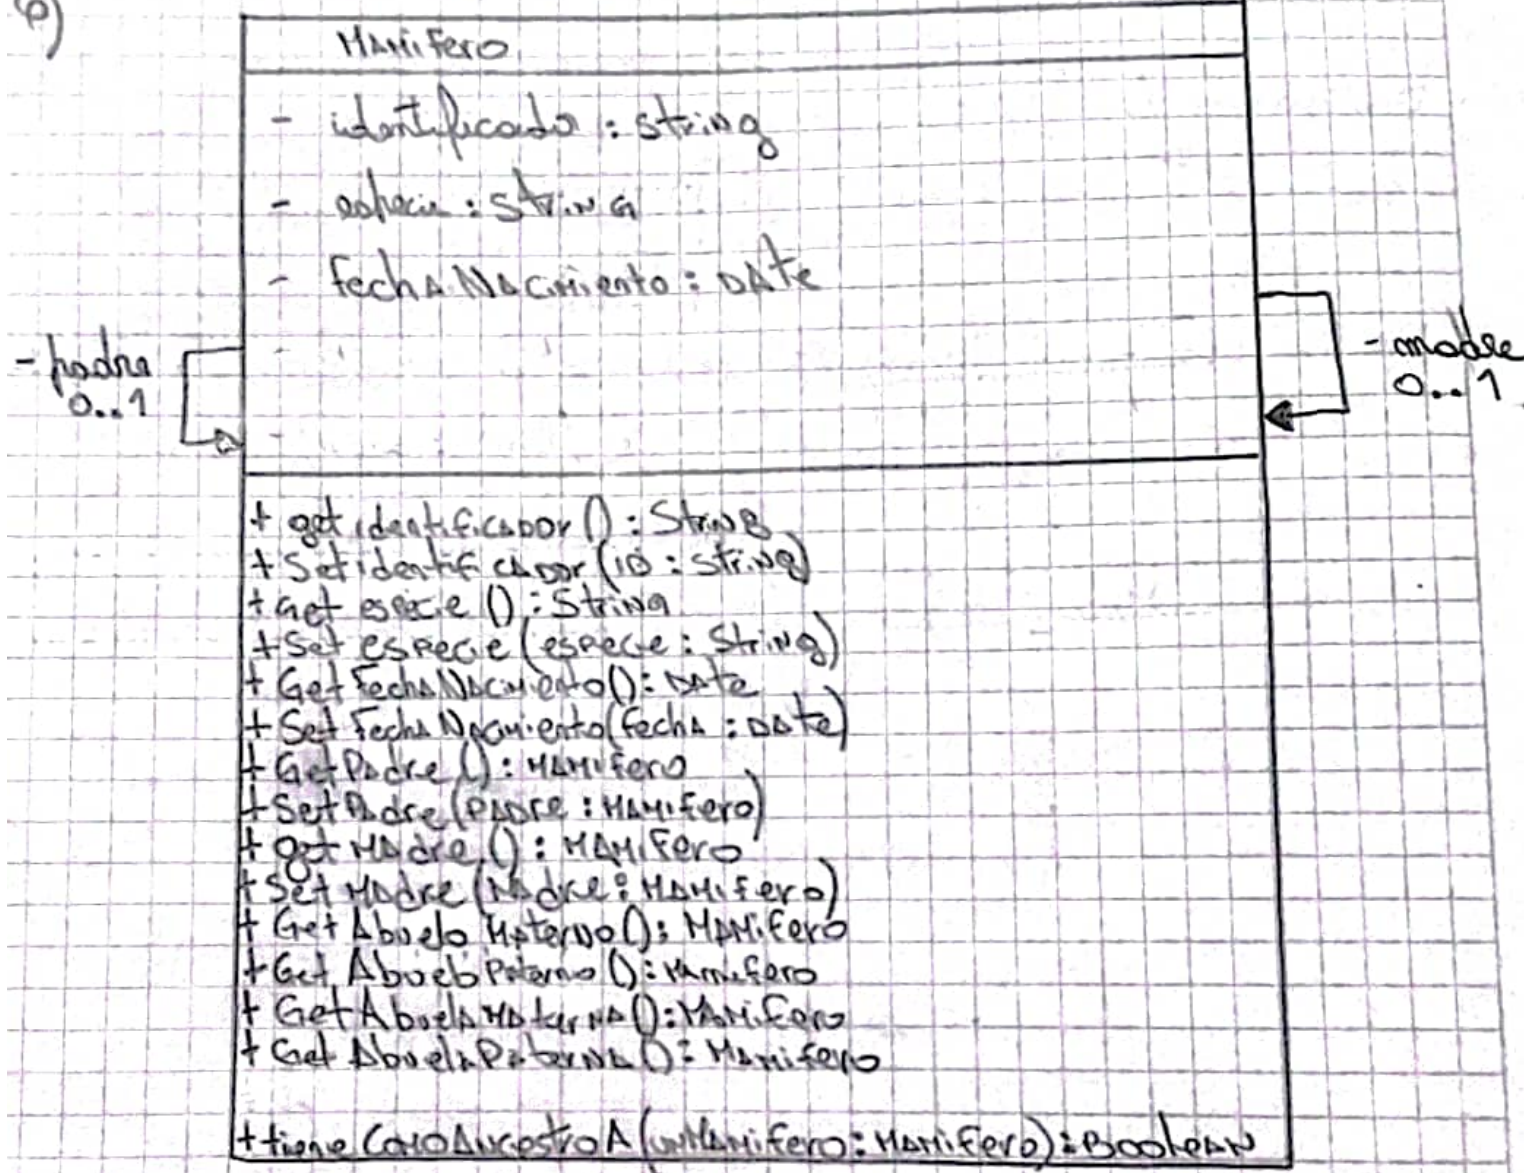 e)
Mamifero
- identificador : string
- especie : String
- fechaNacimiento : Date
- padre
0..1
- madre
0..1
+ getidentificador () : String
+ Setidentificador (ID : string)
+ Get especie () : String
+ Set especie (especie : String)
+ GetFechaNacimiento() : Date
+ SetFechaNacimiento(fecha : Date)
+ GetPadre () : Mamifero
+ SetPadre (Padre : Mamifero)
+ getMadre () : Mamifero
+ SetMadre (Madre : Mamifero)
+ GetAbueloMaterno() : Mamifero
+ GetAbueloPaterno () : Mamifero
+ GetAbuelaMaterna() : Mamifero
+ GetAbuelaPaterna() : Mamifero
+ tieneComoAncestroA (unMamifero : Mamifero) : Boolean